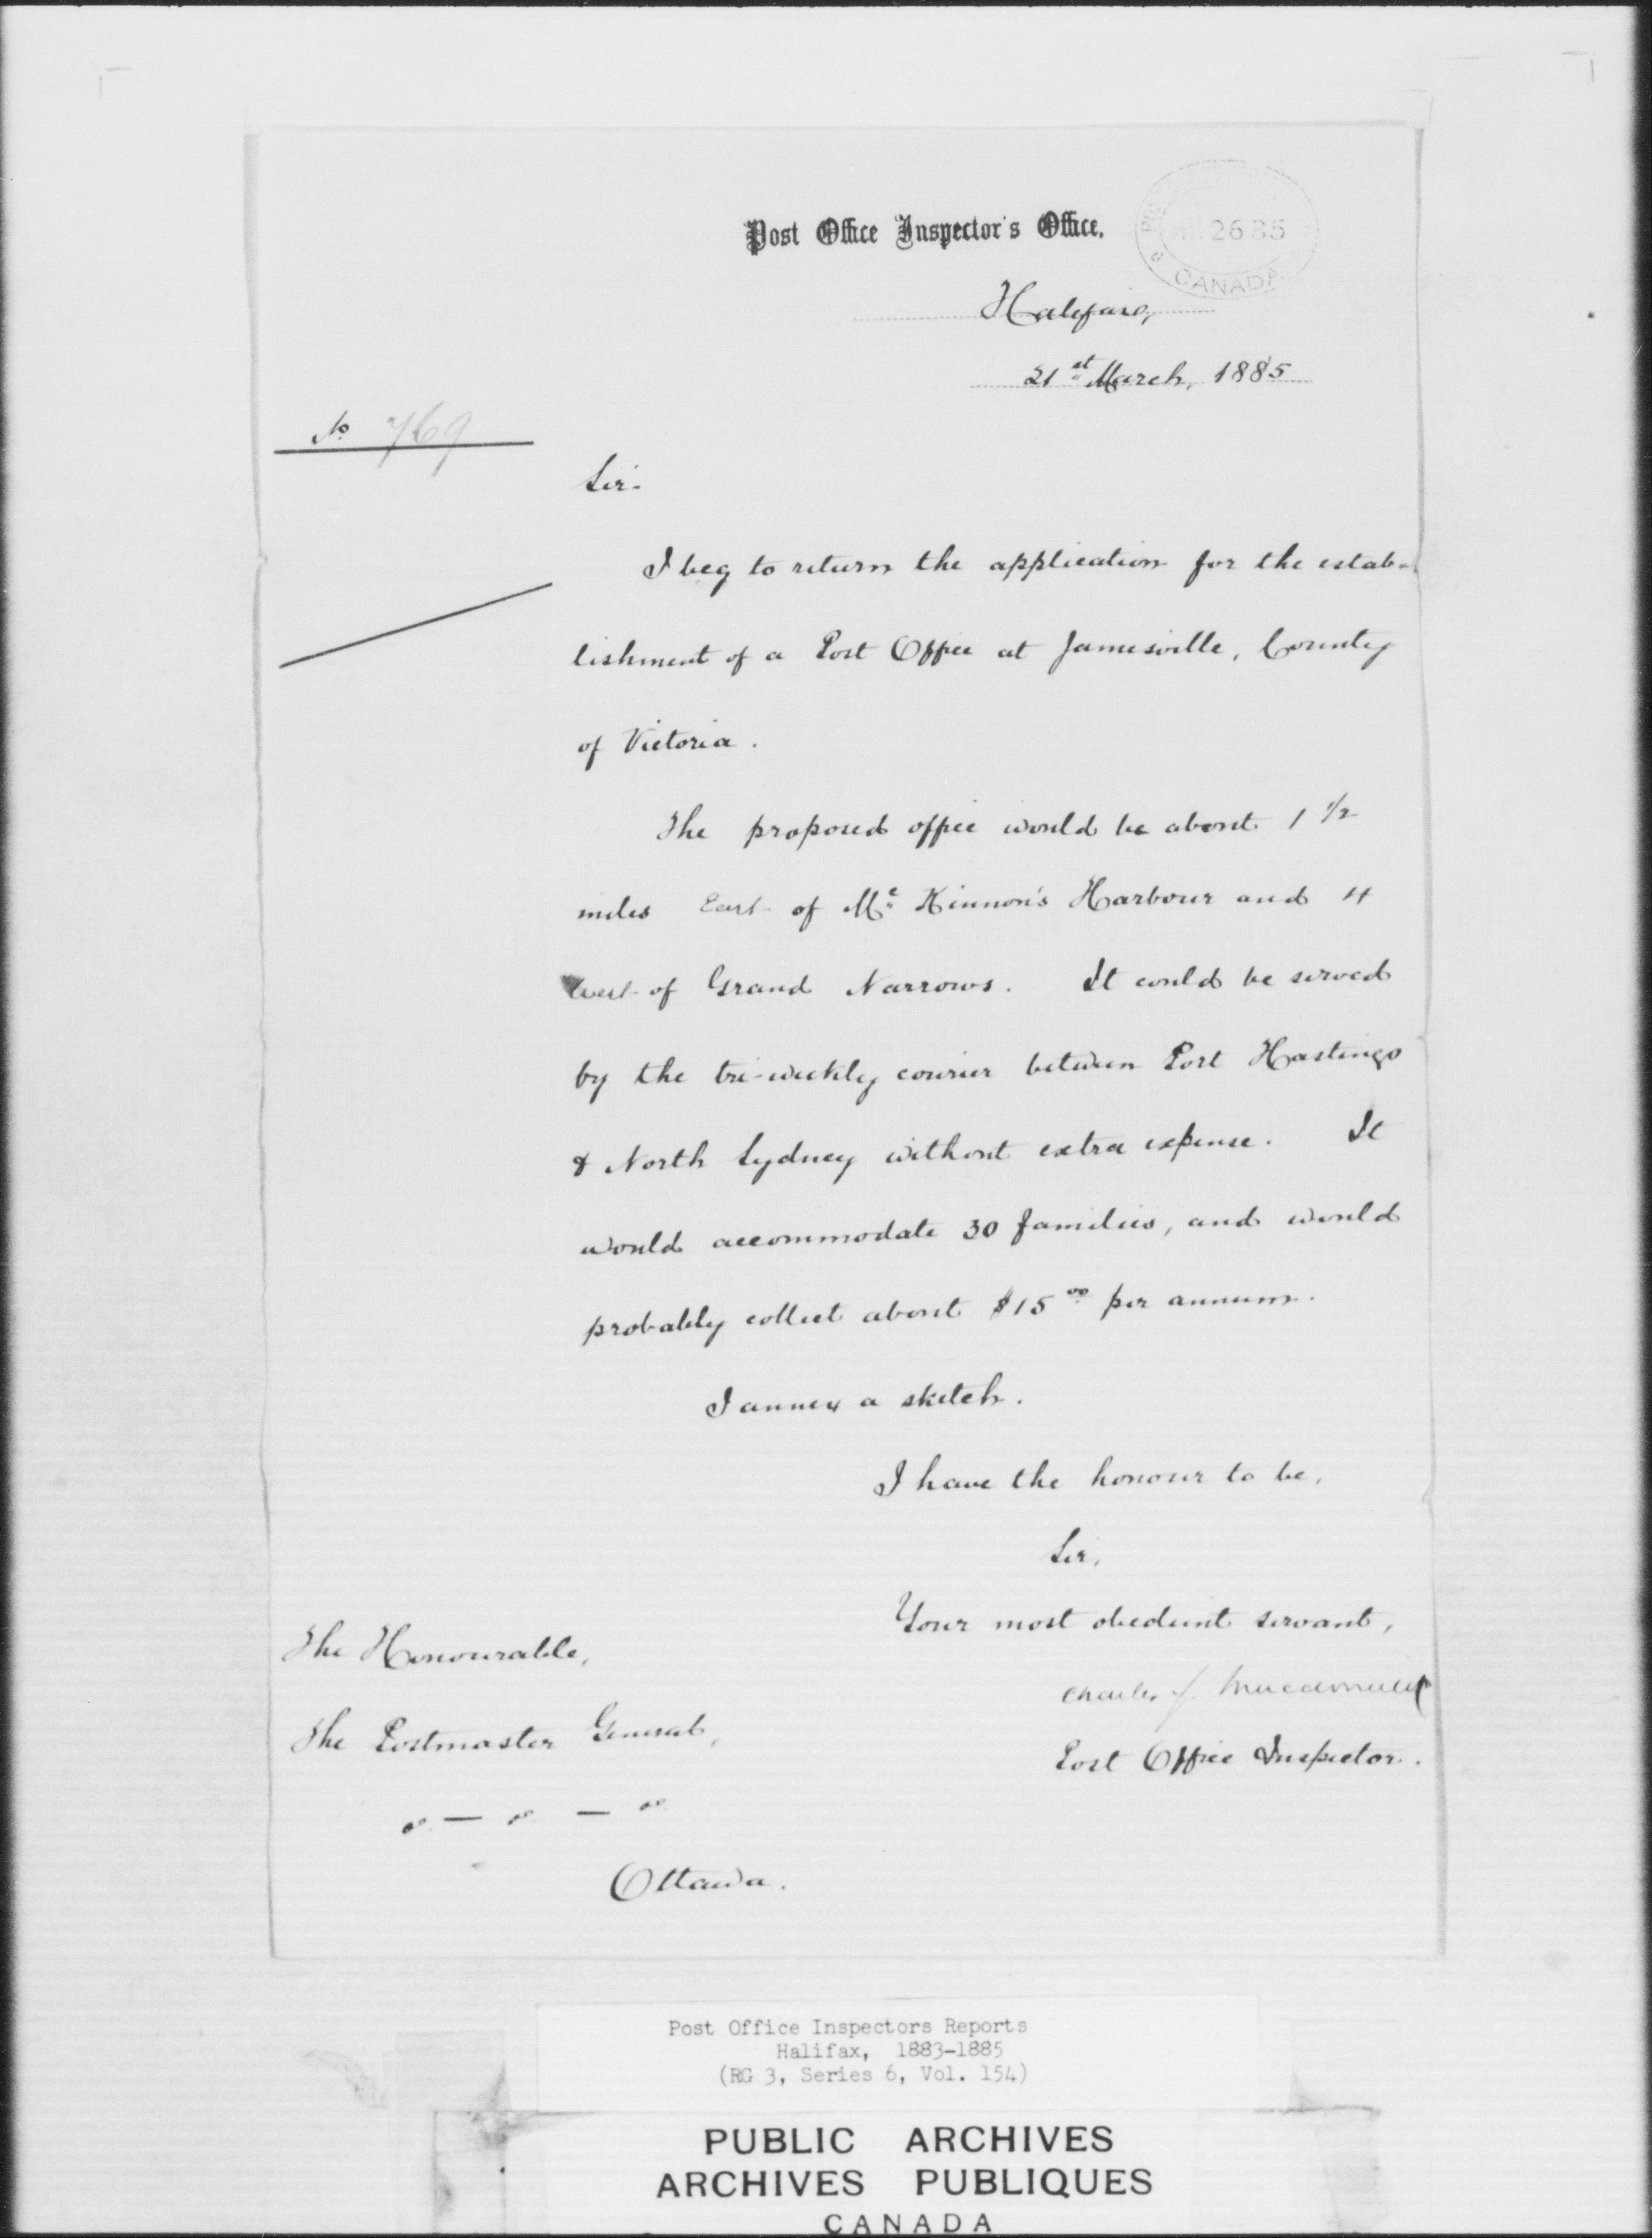 Post Office Inspector's Office.
26 85
CANADA
Halifax,
21st March, 1885
No 769
Sir-
I beg to return the application for the estab-
lishment of a Post Office at Jamesville, County
of Victoria.
The proposed office would be about 1 1/2
miles East of Mc Kinnon's Harbour and 4
West of Grand Narrows. It could be served
by the tri-weekly courier between Port Hastings
& North Sydney without extra expense. It
would accommodate 30 families, and would
probably collect about $15 00 per annum.
I annex a sketch.
I have the honour to be,
Sir,
Your most obedient servant,
Charles J. Macdonald
Post Office Inspector.
The Honourable,
The Postmaster General,
Ottawa.
Post Office Inspectors Reports
Halifax, 1883-1885
(RG 3, Series 6, Vol. 154)
PUBLIC ARCHIVES
ARCHIVES PUBLIQUES
CANADA